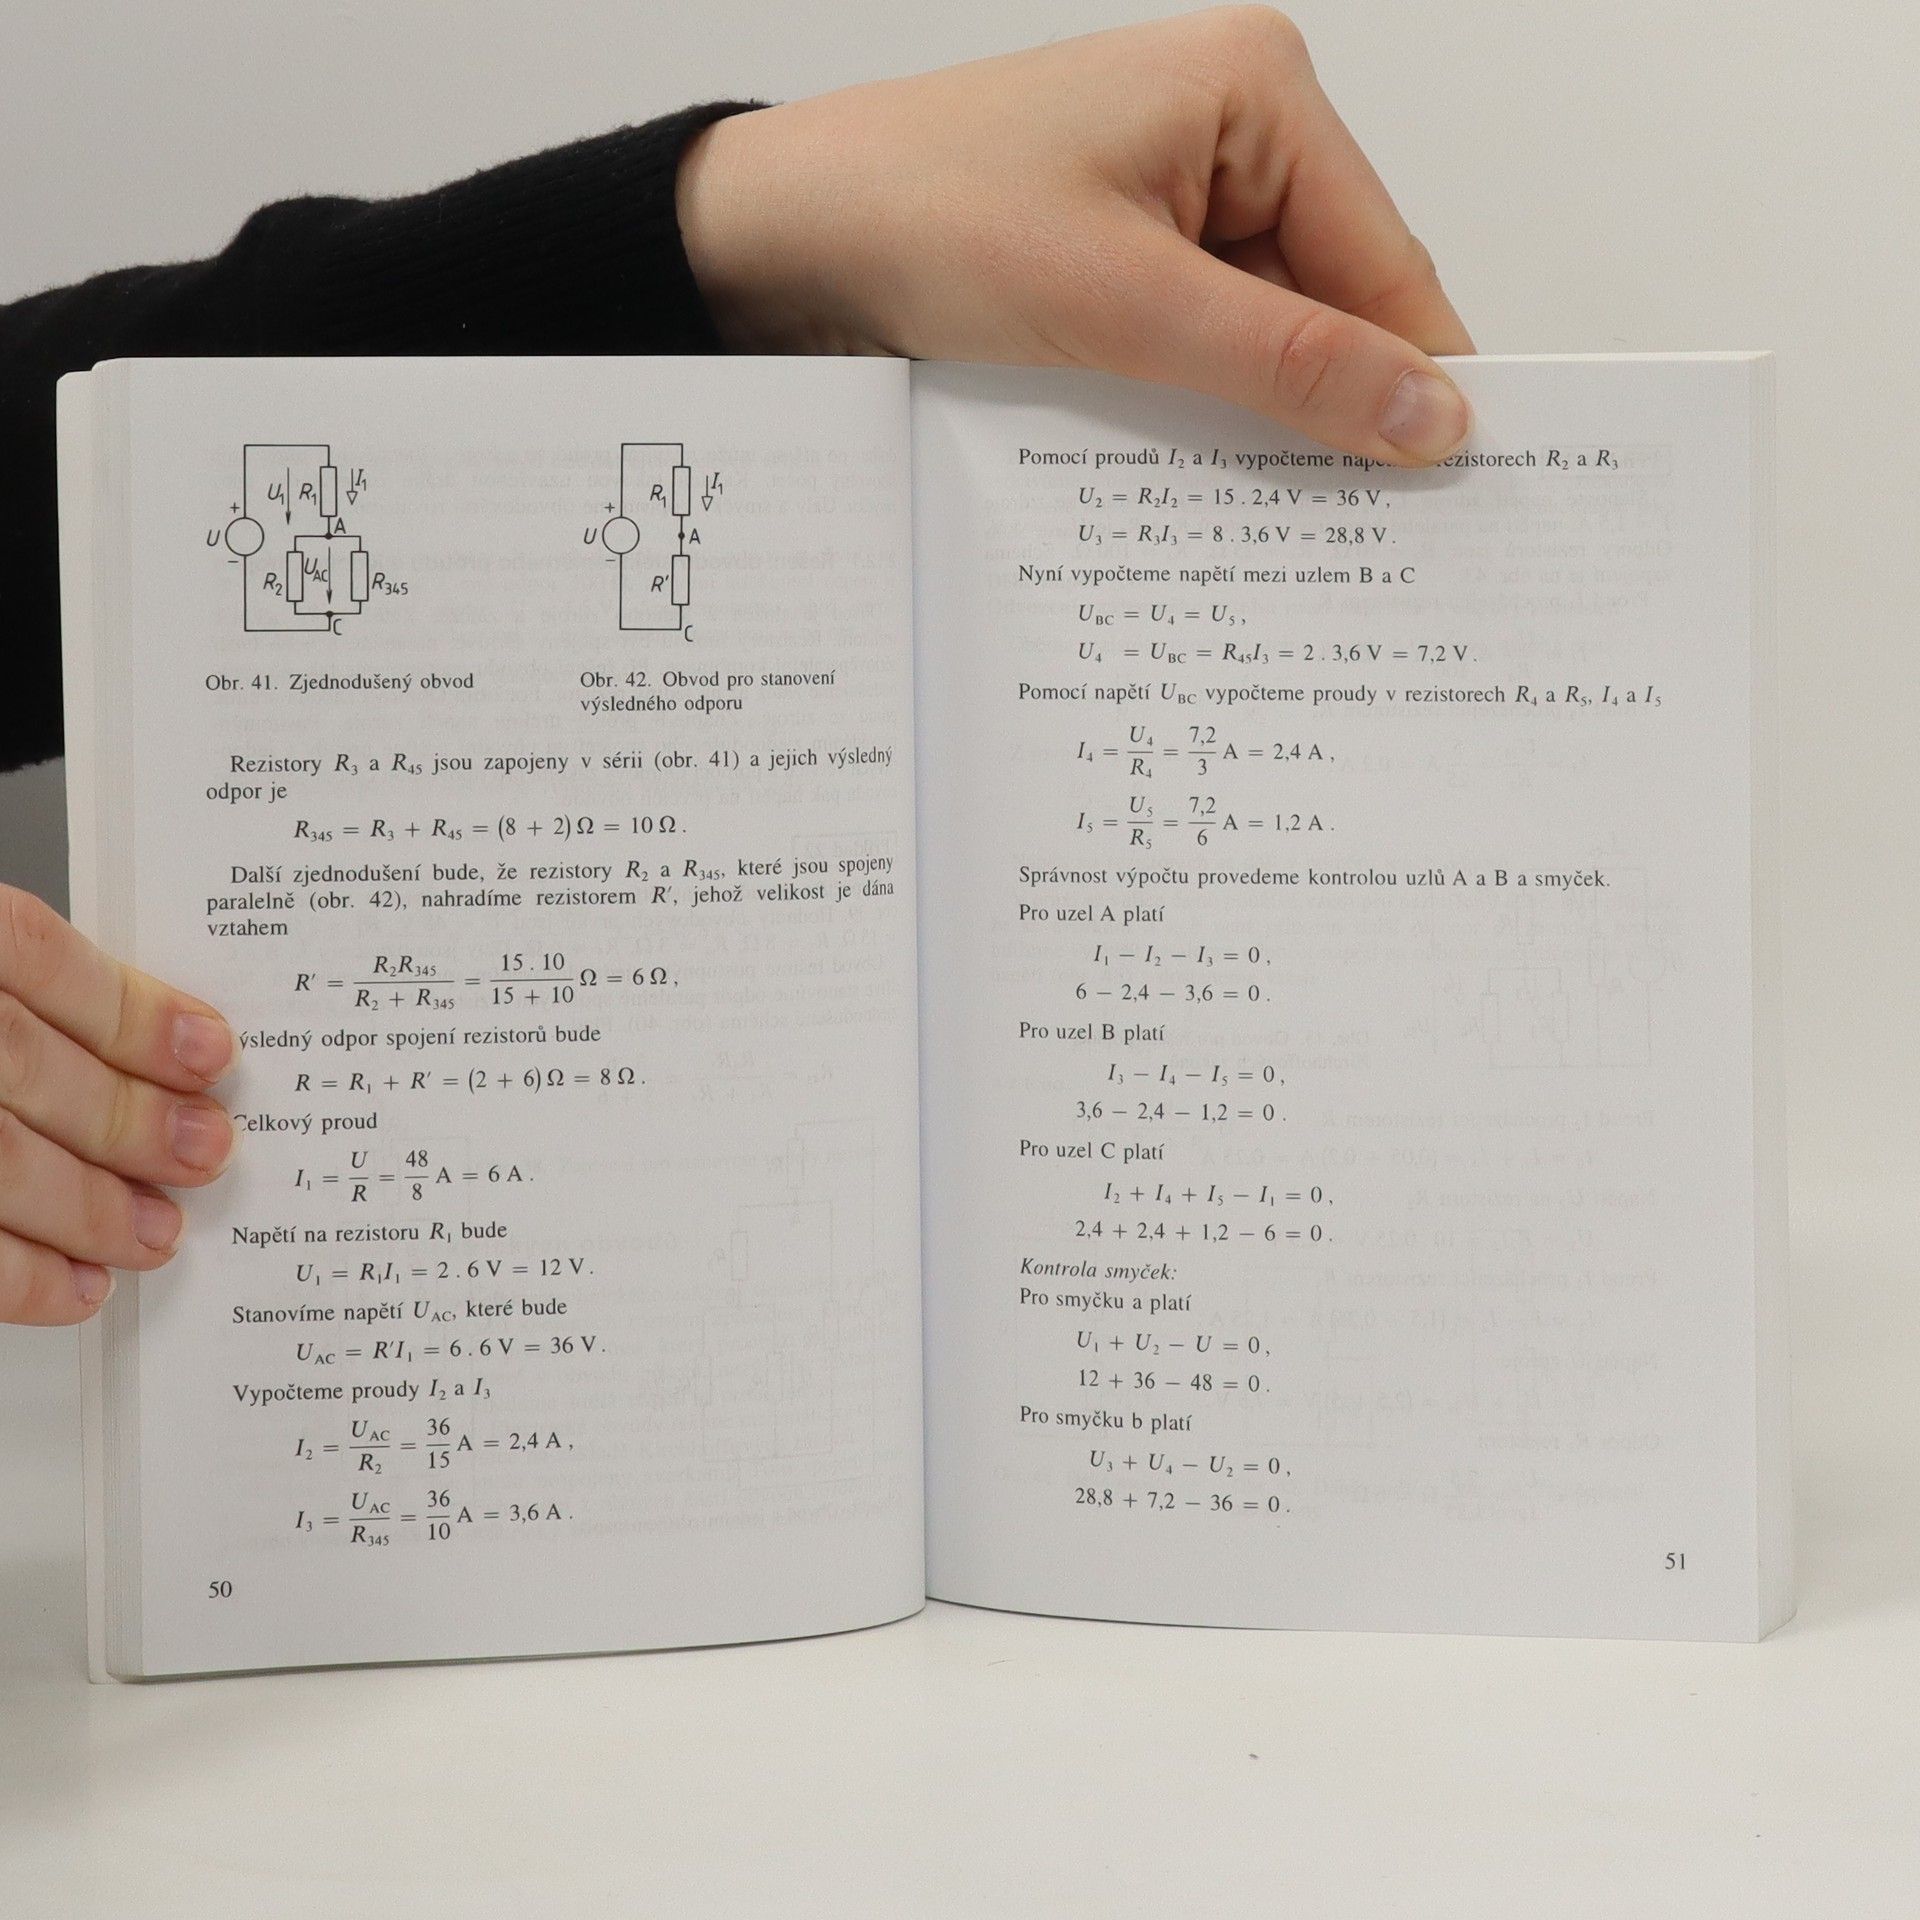 U
+
−
U₁
R₁
I₁
A
R₂
U_AC
R₃₄₅
C
Obr. 41. Zjednodušený obvod
U
+
−
R₁
I₁
A
R'
C
Obr. 42. Obvod pro stanovení
výsledného odporu
Rezistory R₃ a R₄₅ jsou zapojeny v sérii (obr. 41) a jejich výsledný
odpor je
R₃₄₅ = R₃ + R₄₅ = (8 + 2) Ω = 10 Ω .
Další zjednodušení bude, že rezistory R₂ a R₃₄₅, které jsou spojeny
paralelně (obr. 42), nahradíme rezistorem R′, jehož velikost je dána
vztahem
R′ = R₂R₃₄₅ / (R₂ + R₃₄₅) = 15 . 10 / (15 + 10) Ω = 6 Ω ,
ýsledný odpor spojení rezistorů bude
R = R₁ + R′ = (2 + 6) Ω = 8 Ω .
elkový proud
I₁ = U/R = 48/8 A = 6 A .
Napětí na rezistoru R₁ bude
U₁ = R₁I₁ = 2 . 6 V = 12 V .
Stanovíme napětí U_AC, které bude
U_AC = R′I₁ = 6 . 6 V = 36 V .
Vypočteme proudy I₂ a I₃
I₂ = U_AC/R₂ = 36/15 A = 2,4 A ,
I₃ = U_AC/R₃₄₅ = 36/10 A = 3,6 A .
50
Pomocí proudů I₂ a I₃ vypočteme rezistorech R₂ a R₃
U₂ = R₂I₂ = 15 . 2,4 V = 36 V ,
U₃ = R₃I₃ = 8 . 3,6 V = 28,8 V .
Nyní vypočteme napětí mezi uzlem B a C
U_BC = U₄ = U₅ ,
U₄ = U_BC = R₄₅I₃ = 2 . 3,6 V = 7,2 V .
Pomocí napětí U_BC vypočteme proudy v rezistorech R₄ a R₅, I₄ a I₅
I₄ = U₄/R₄ = 7,2/3 A = 2,4 A ,
I₅ = U₅/R₅ = 7,2/6 A = 1,2 A .
Správnost výpočtu provedeme kontrolou uzlů A a B a smyček.
Pro uzel A platí
I₁ − I₂ − I₃ = 0 ,
6 − 2,4 − 3,6 = 0 .
Pro uzel B platí
I₃ − I₄ − I₅ = 0 ,
3,6 − 2,4 − 1,2 = 0 .
Pro uzel C platí
I₂ + I₄ + I₅ − I₁ = 0 ,
2,4 + 2,4 + 1,2 − 6 = 0 .
Kontrola smyček:
Pro smyčku a platí
U₁ + U₂ − U = 0 ,
12 + 36 − 48 = 0 .
Pro smyčku b platí
U₃ + U₄ − U₂ = 0 ,
28,8 + 7,2 − 36 = 0 .
51